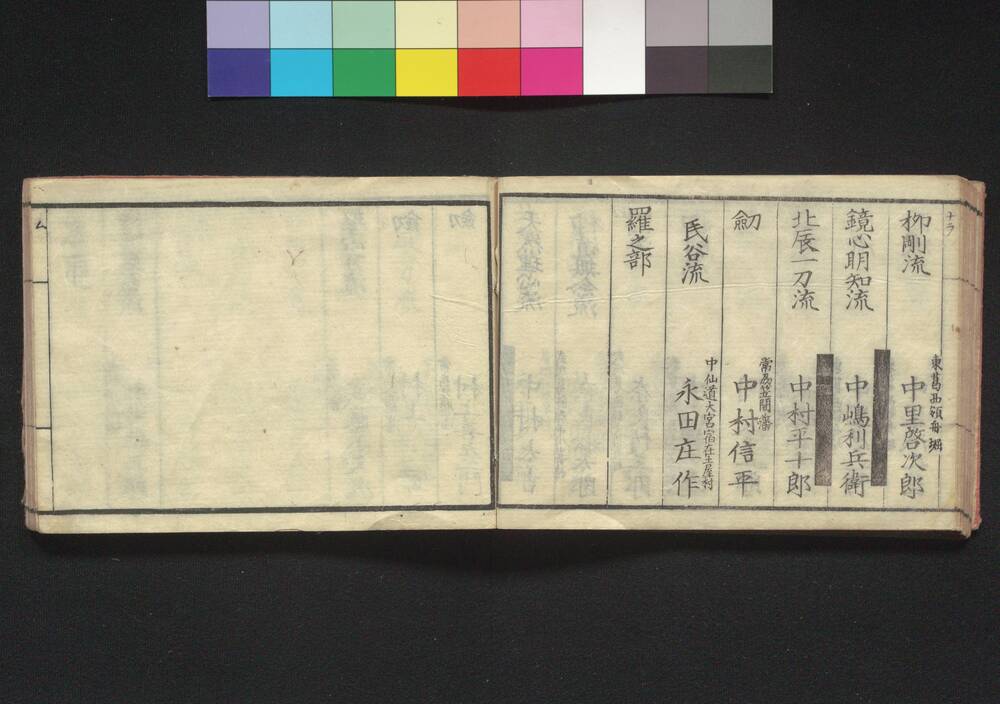 十ラ
柳剛流
東葛西領舟堀
中里啓次郎
鏡心明知流
中嶋利兵衛
北辰一刀流
中村平十郎
劔
常刕笠間藩
中村信平
民谷流
中仙道大宮宿在土屋村
永田庄作
羅之部
ム